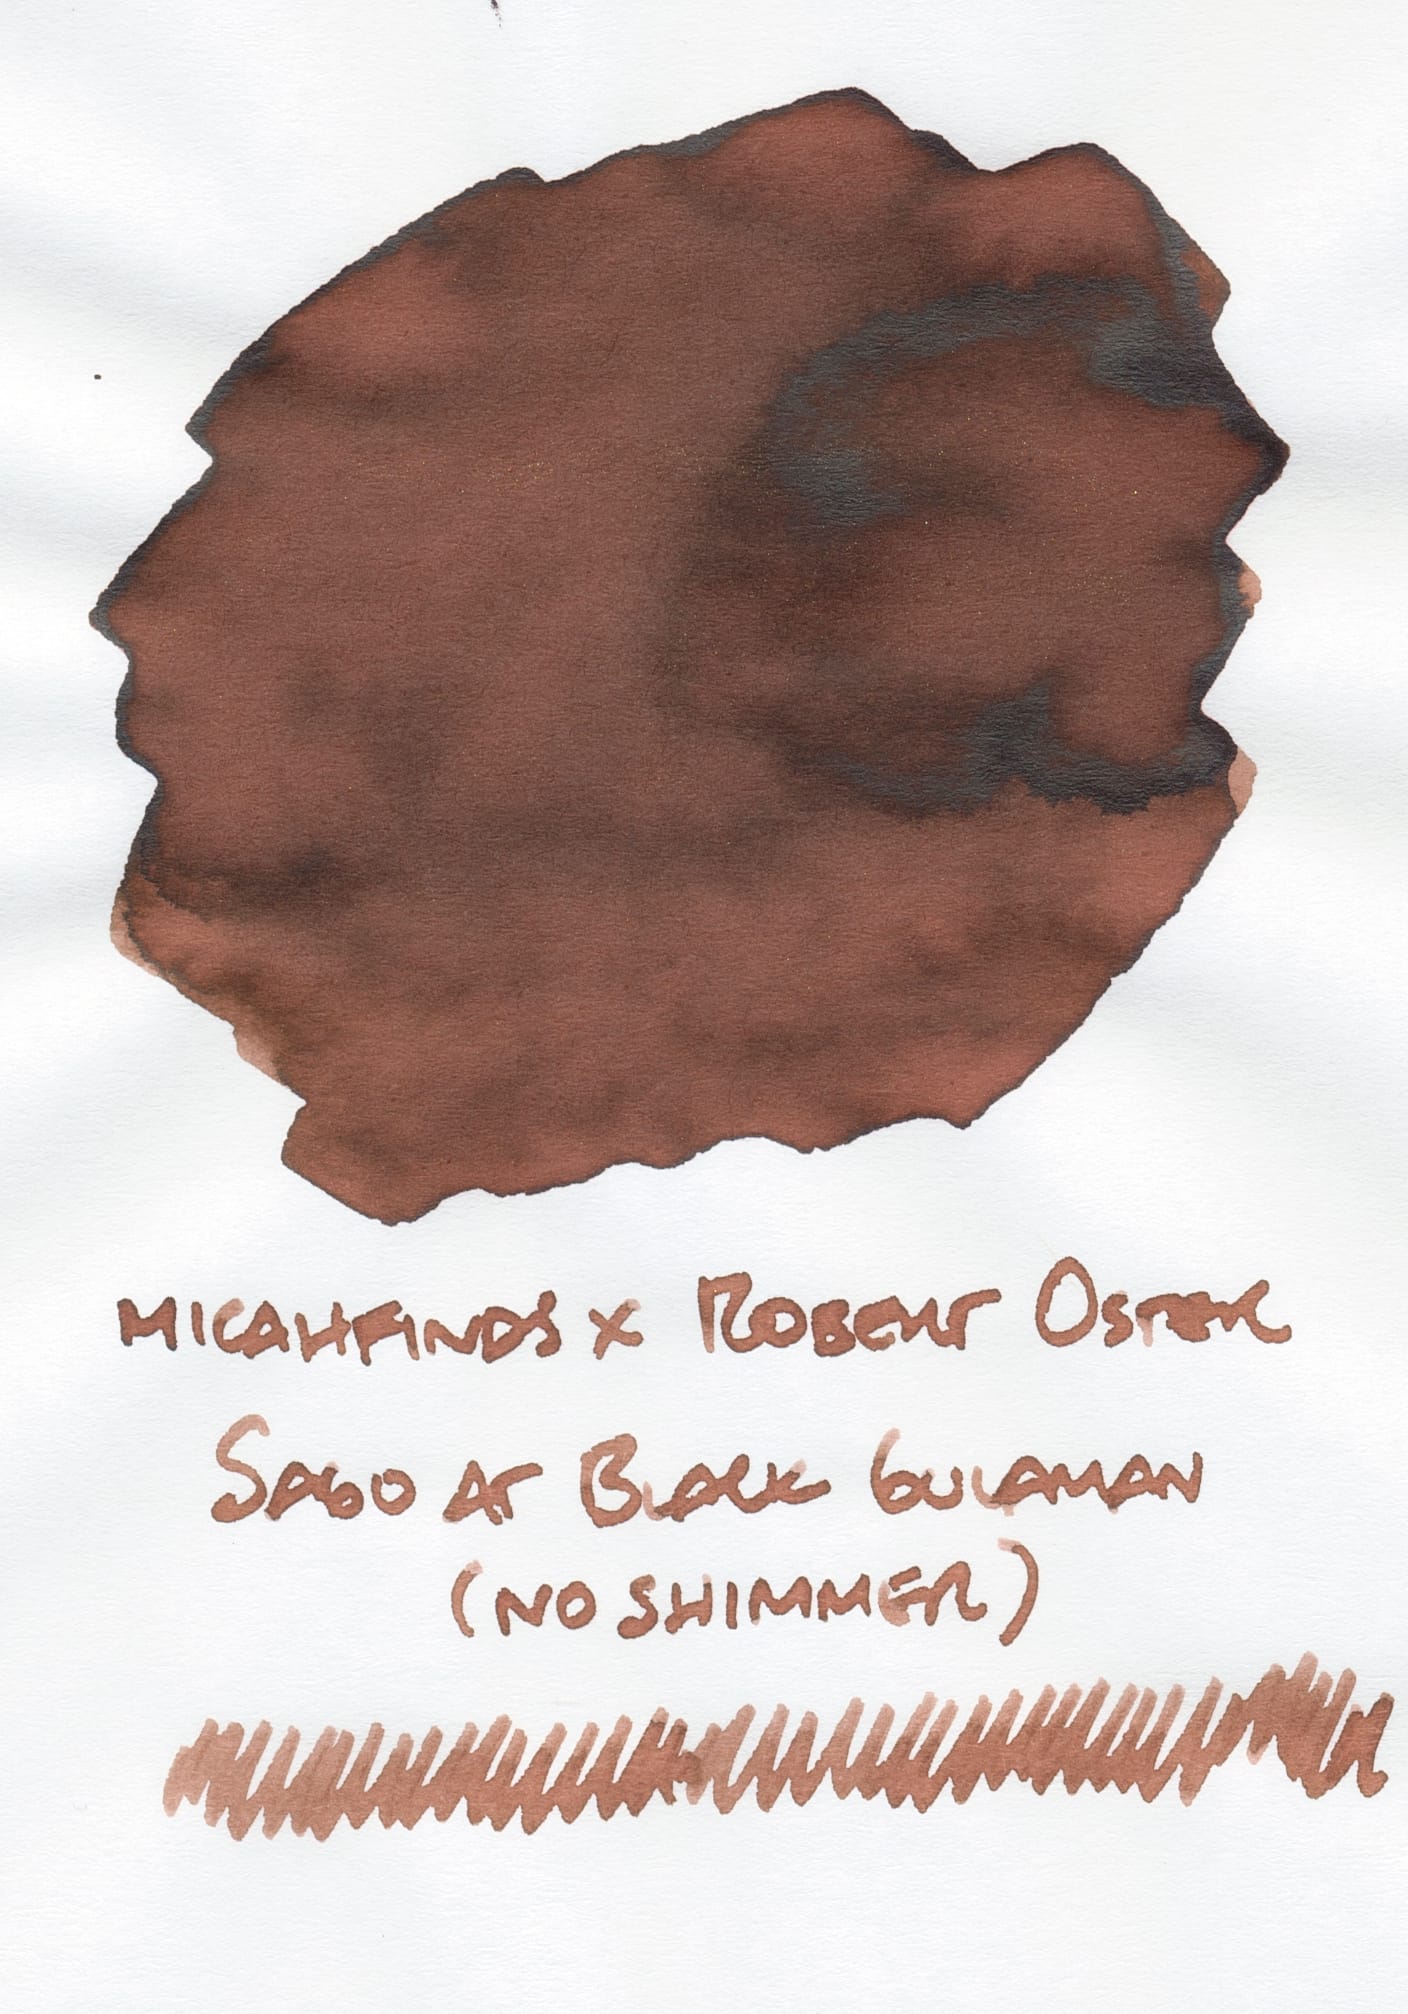 MICAHFINDS x ROBERT OSTER
SAGO AT BLACK GULAMAN
(NO SHIMMER)